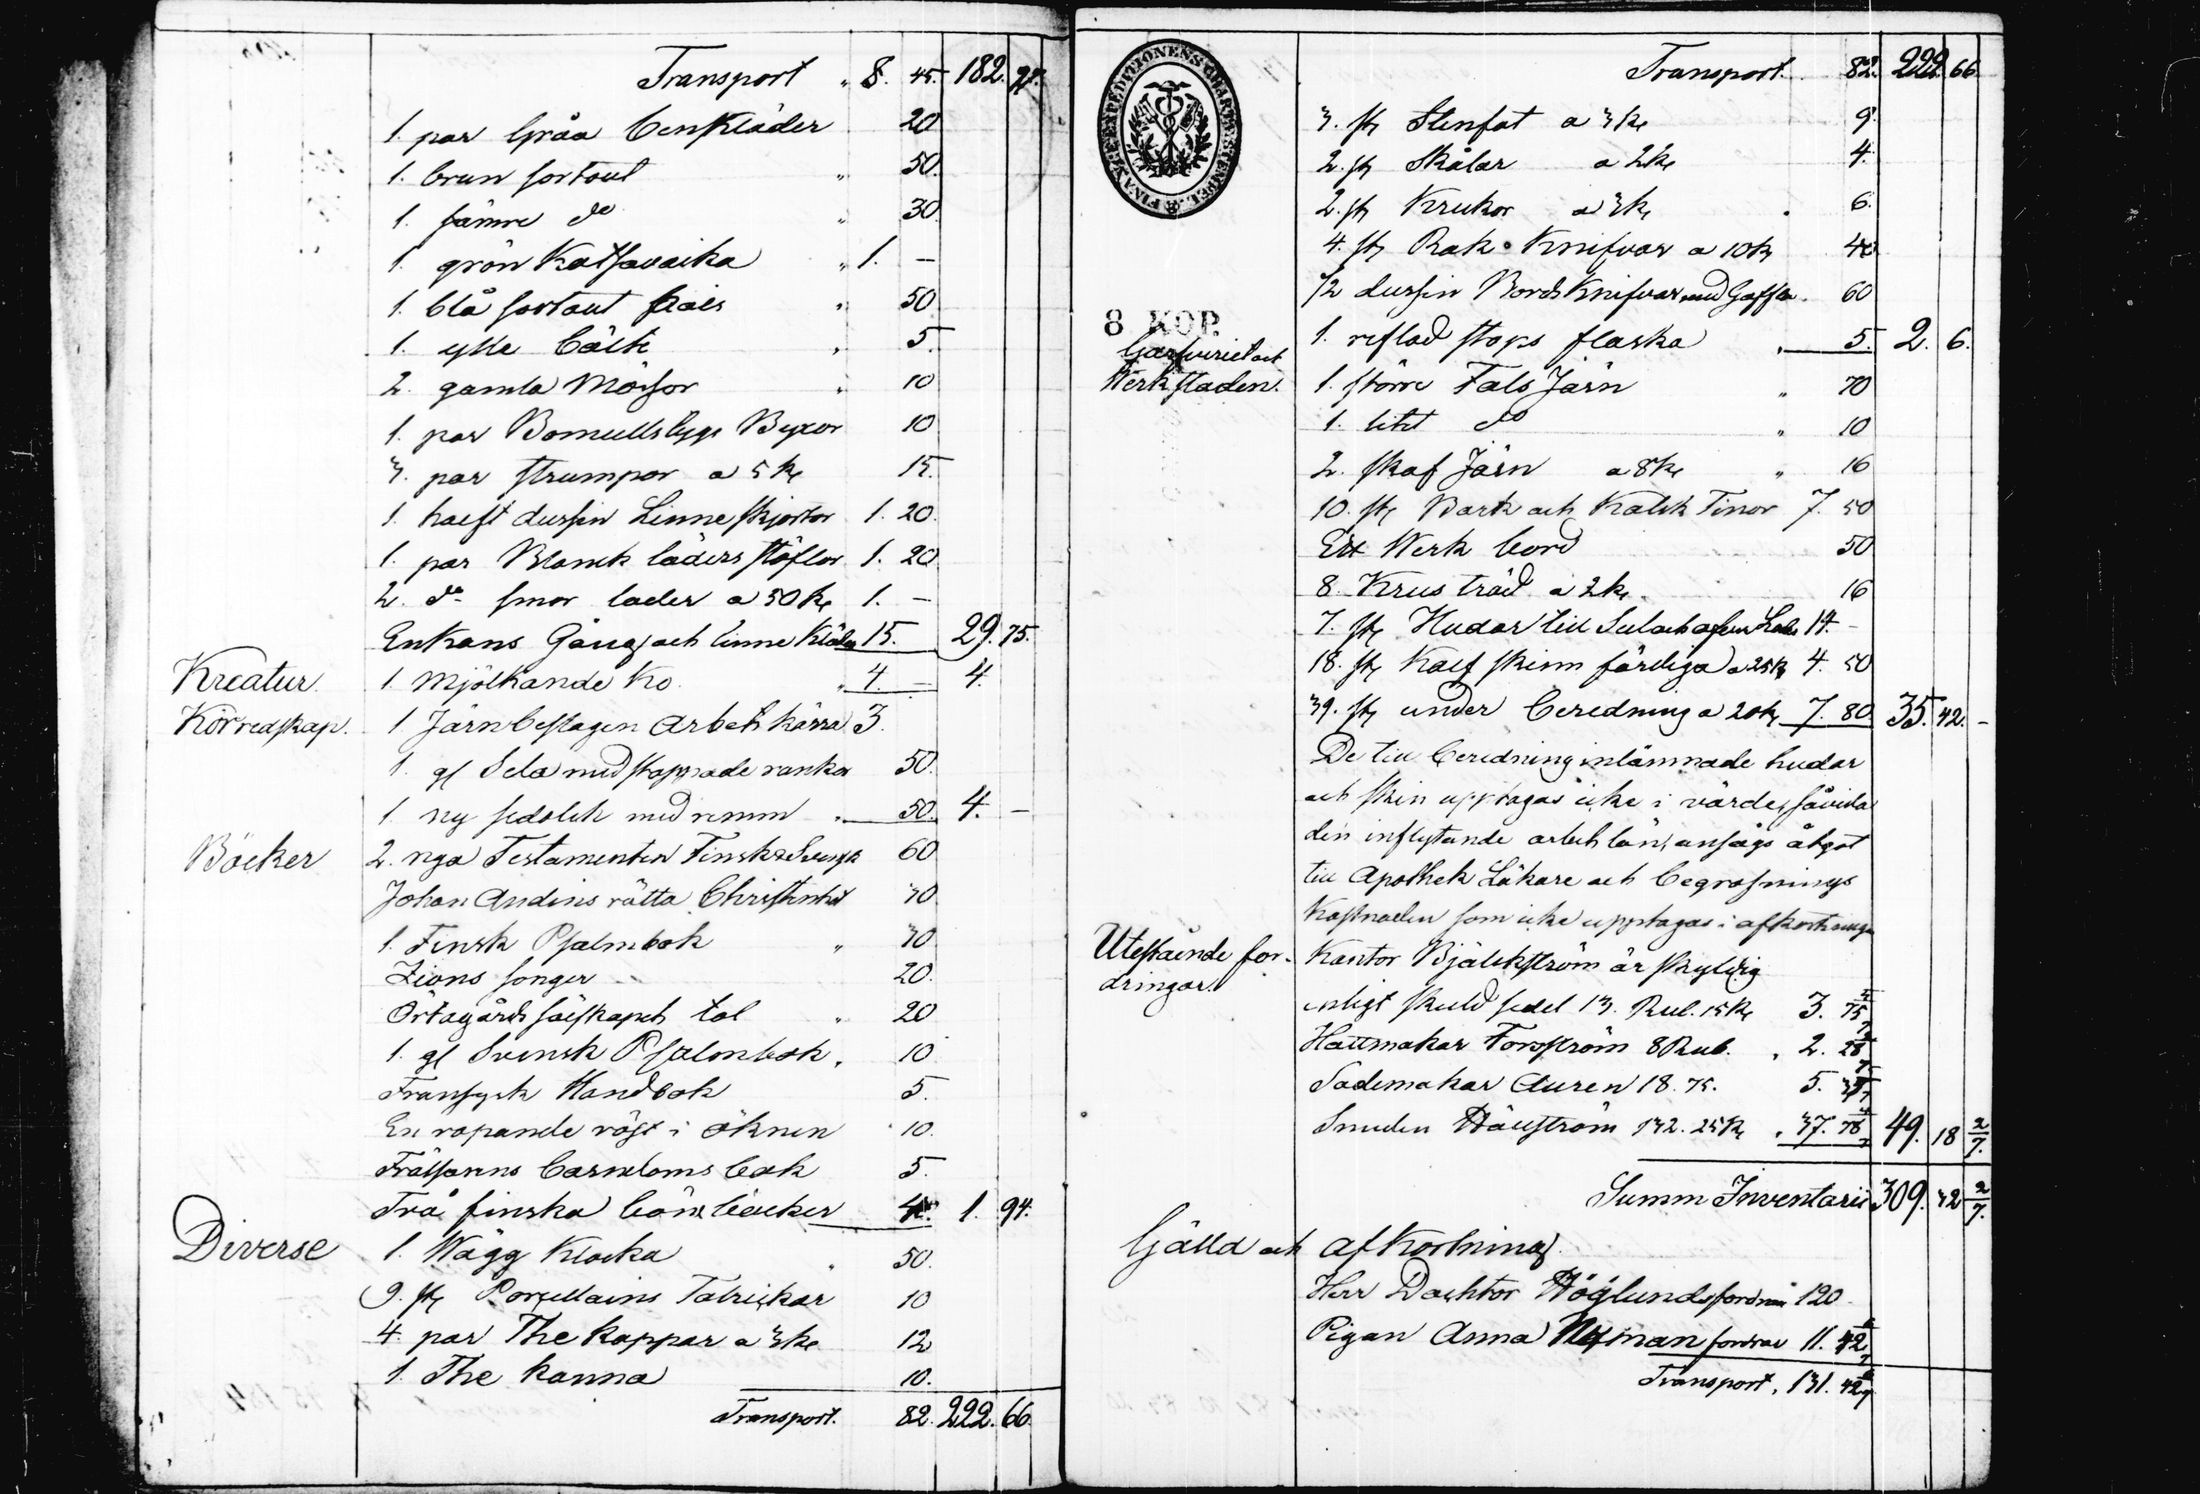 Transport " 8. 45. 182. 97.
1. par Gråa benkläder 20
1. brun sortout " 50.
1. sämre do " 30.
1. grön Katsavaika " 1. —
1. blå sortout " 50
1. ylle bält " 5.
2. gamla Mössor " 10
1. par Bomulls tygs Byxor 10
3. par strumpor a 5 k. 15.
1. halft dussin Linne skjortor 1. 20.
1. par Blank läders stöflor 1. 20
2. do smor läder a 50 k. 1. —
Enkans Gång och linne Kläder 15. 29. 75.
Kreatur. 1. Mjölkande Ko. " 4. — 4.
Körredskap. 1 Järnbeslagen Arbets kärra 3.
1. gl Sela med stoppade rankor 50.
1 ny sedolk med remm " 50. 4. —
Böcker 2. nya Testamenten Finsk & Svensk 60
Johan Arndins rätta Christendom 30
1. Finsk Psalmbok " 30
Zions songer 20.
Örtagårds sälskapets tal " 20
1. gl Svensk Psalmbok " 10
Fransysk Handbok 5.
En ropande röst i öknen 10.
Frälsarens barndoms bok 5.
Två finska bönböcker 4. 1. 94.
Diverse 1. Wägg Klocka " 50.
9. st. Porcellains Talrickar 10
4. par The koppar a 3 k. 12
1. The kanna 10.
Transport. 82. 222. 66.
FINANS EXPEDITIONENS CHARTÆ STEMPEL
8 KOP.
Transport. 82. 222. 66.
3. st. Stenfat a 3 k. 9.
2. st. Skålar a 2 k. 4.
2. st. Krukor a 3 k. " 6.
4. st. Rak Knifvar a 10 k. 40
1/2 dussin Bords Knifvar med Gafflar. 60
1. reflad stops flaska " 5. 2. 6.
Garfveriet och
Werkstaden. 1. större Fals Järn " 70
1. litet do " 10
2. skaf Järn a 8 k. " 16
10. st. Bark och Kalk Tinor 7. 50
Ett Werk bord 50
8. Krus träd a 2 k. 16
7. st. Hudar till Sul och Läder 14. —
18. st. Kalf skinn färdiga a 25 k. 4. 50
39. st. under beredning a 20 k. 7. 80 35. 42. —
De till beredning inlämnade hudar
och skin upptagas icke i värde, såvida
den inflytande arbets lön, ansågs åtgåt
till Apothek Läkare och begrafnings
Kostnaden som icke upptagas i afkortningen
Utestående for-
dringar. Kantor Bjälckström är skyldig
enligt skuld sedel 13. Rub. 15 k. 3. 75
Hattmakar Forsström 8 Rub. " 2. 28
Sadelmakar Auren 18. 75. 5.
Smeden Hällström 132. 25 k. " 37. 78 49. 18 2/7.
Summ Inventarii 309. 32 2/7.
Gälld och afkortning.
Herr Dochtor Höglunds fordran 120
Pigan Anna Nyman fordrar 11. 42
Transport. 131. 42